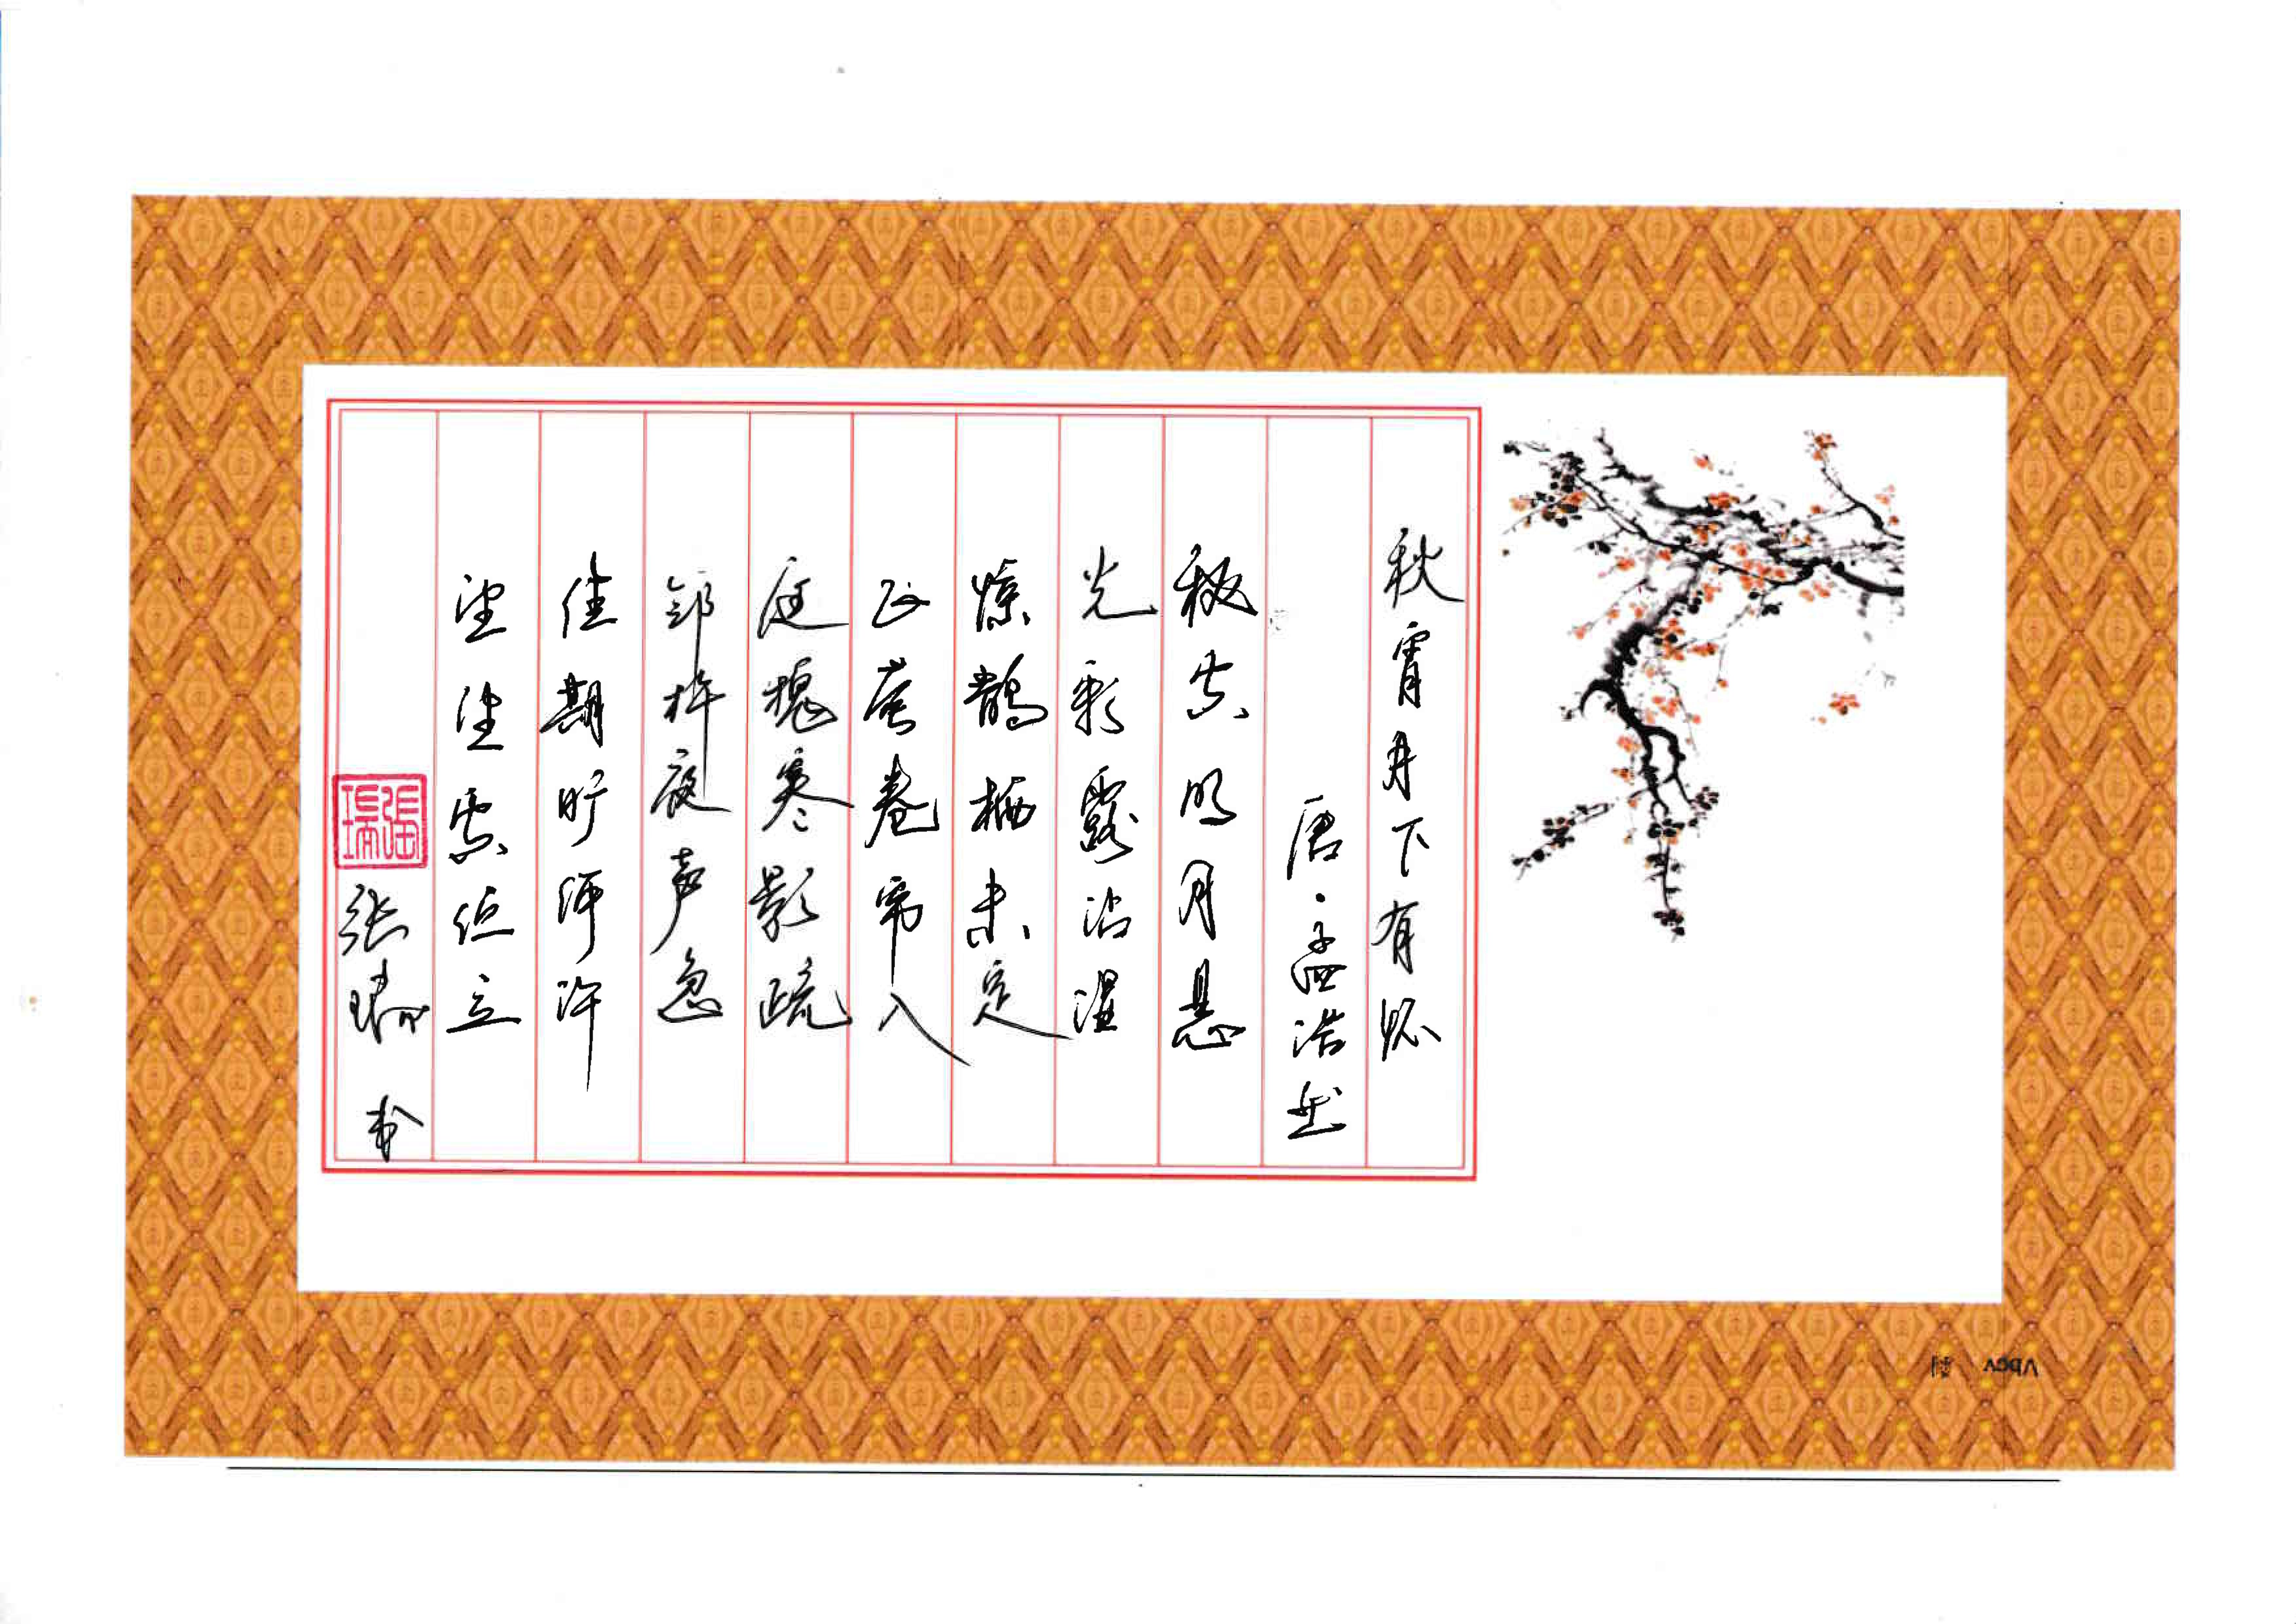 秋宵月下有怀
唐·孟浩然
秋空明月悬
光彩露沾湿
惊鹊栖未定
飞萤卷帘入
庭槐寒影疏
邻杵夜声急
佳期旷何许
望望空伫立
张瑞书
張瑞